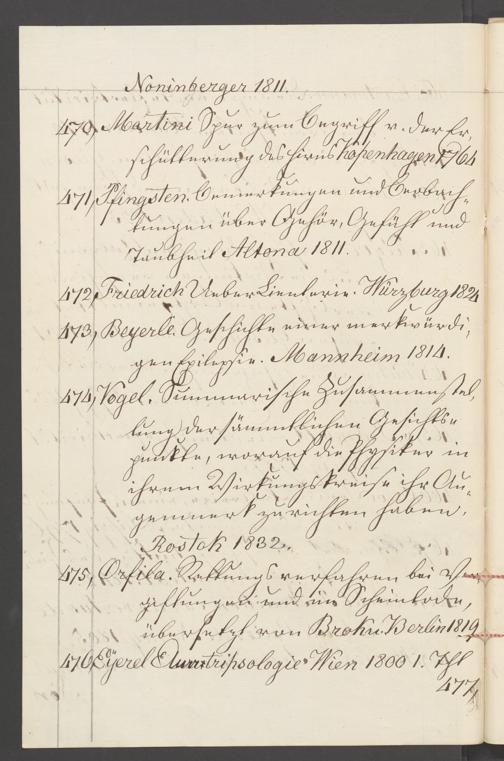 Noninberger 1811.
470, Martini Spur zum Begriff v. der Er,
schütterung des Hirns Kopenhagen 1764
471, Pfingsten. Bemerkungen und Beobach-
tungen über Gehör, Gefühl und
Taubheit Altona 1811.
472, Friedrich Ueber Lienterie. Würzburg 1824
473, Beyerle. Geschichte einer merkwürdi,
gen Epilepsie. Mannheim 1814.
474, Vogel. Summarische Zusammenstel,
lung der sämmtlichen Gesichts-
punkte, worauf die Physiker in
ihrem Wirkungskreise ihr Au-
genmerk zu richten haben.
Rostok 1832.
475, Orfila. Rettungsverfahren bei Ver
giftungen und im Scheintode,
übersetzt von Brokn. Berlin 1819
476, Eyerel Wien 1800 1. Thl
477,